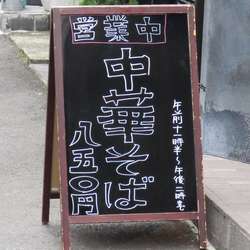 営業中
中華そば
八五〇円
午前十一時半～午後二時迄